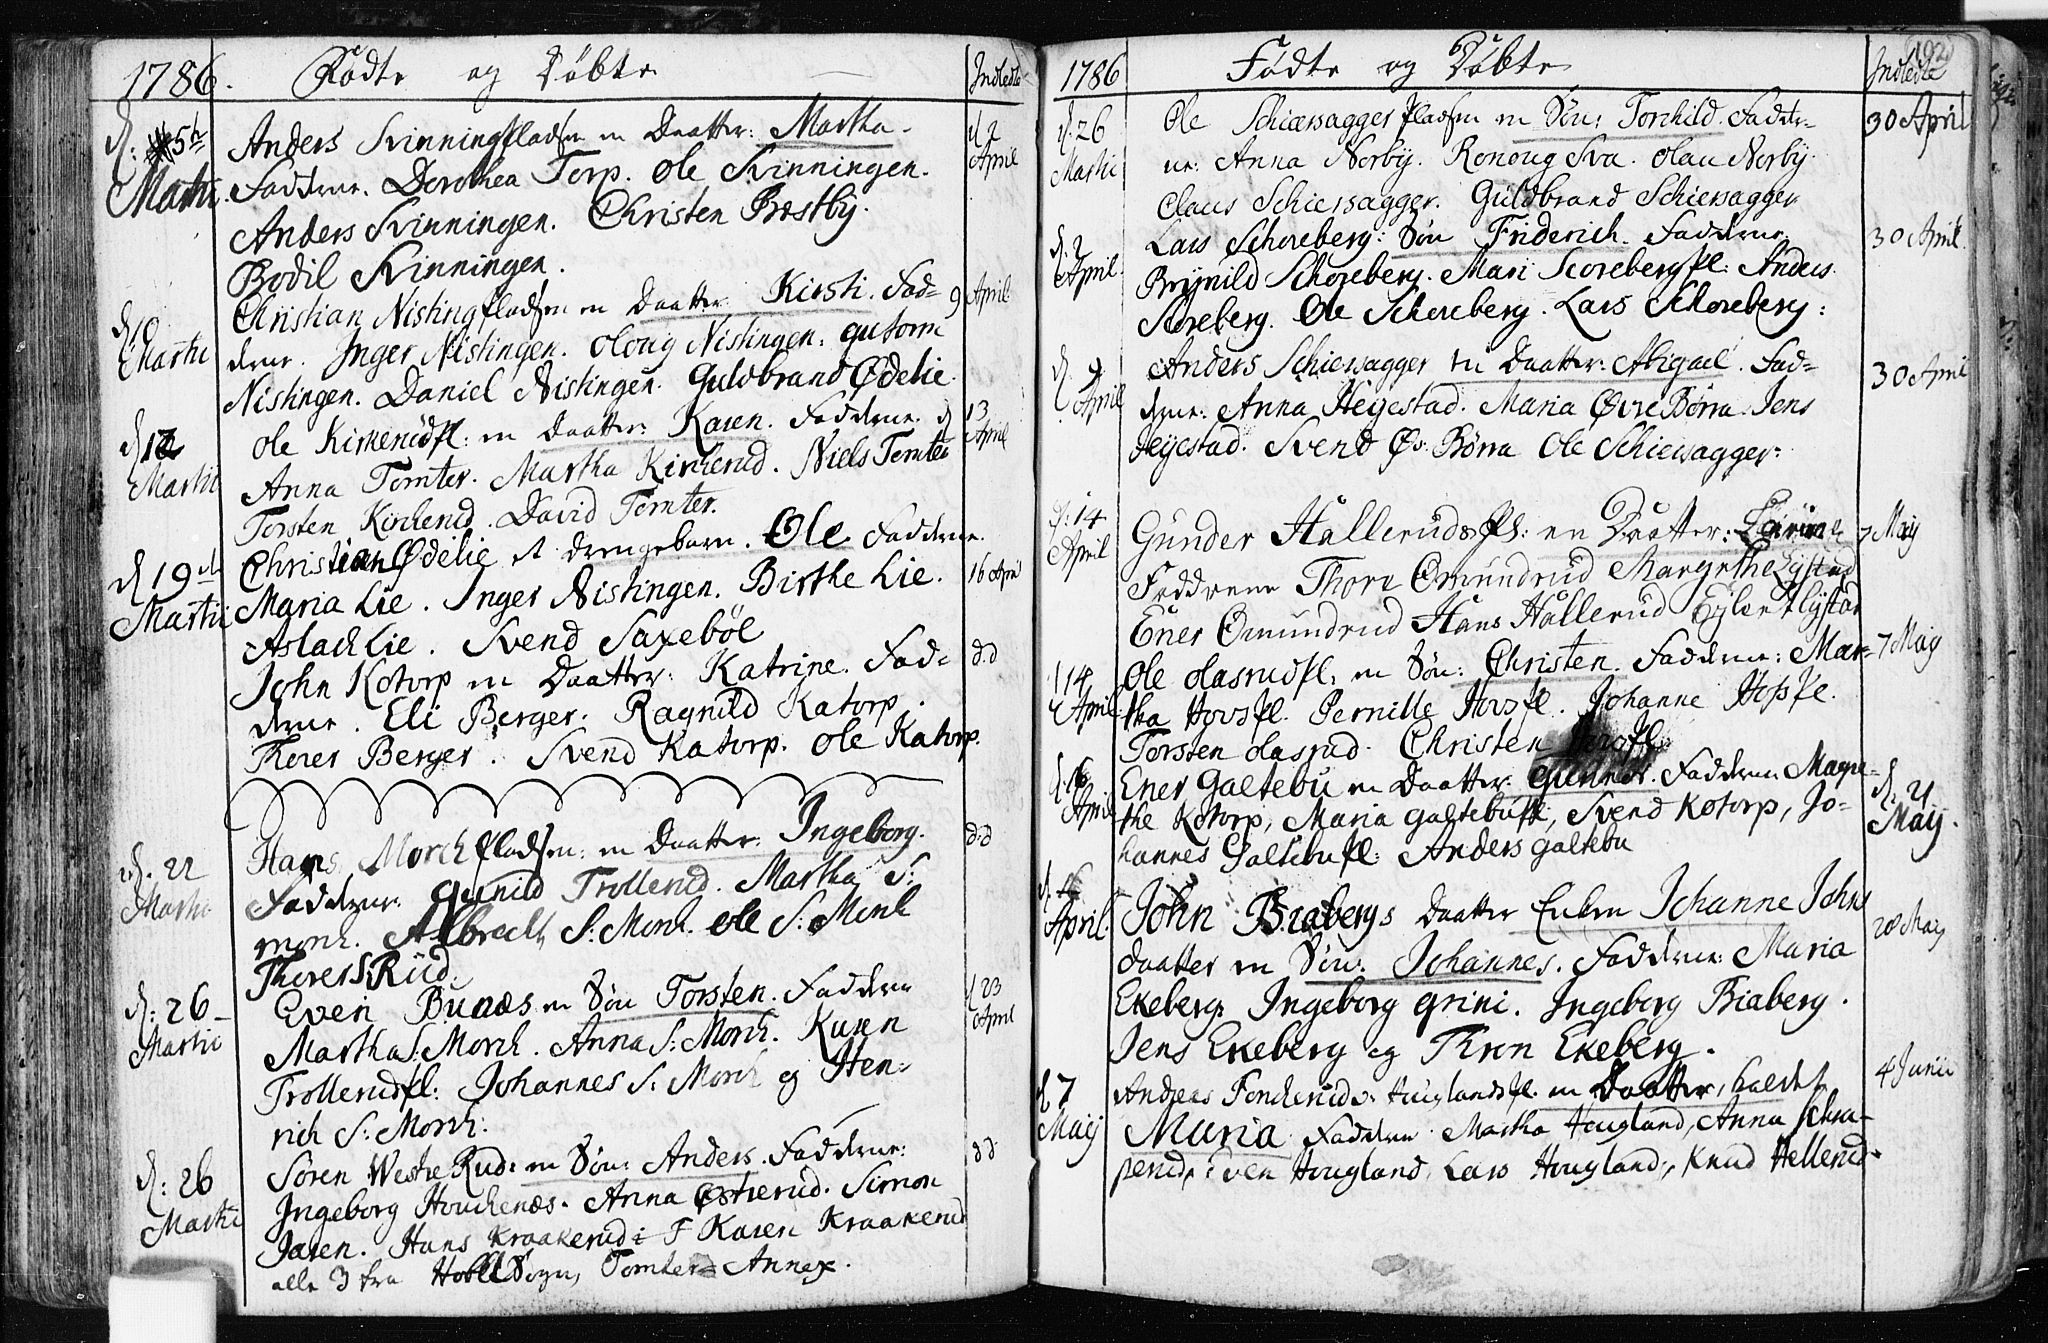 1786. Fødte og Døbte Indledte
d: 5te Martii Anders Svinningpladsen en Daatter: Martha. d 2 April
Faddrene. Dorothea Torp. Ole Svinningen.
Anders Svinningen. Christen Bøstby.
Bodil Svinningen.
d 10 Martii Christian Nistingpladsen en Daatter Kirsti. Fad= 9 April
drene. Inger Nistingen. Gutorm
Nistingen. Daniel Nistingen. Guldbrand Ødelie.
d 12 Martii Ole Kirkerudpl: en Daatter: Karen. Faddrene. d 13 April
Anna Tomter. Martha Kirkerud. Niels Tomter
Torsten Kirkerud. David Tomter.
d 19de Martii Christian Ødelie et drengebarn. Ole Faddrene.
Maria Lie. Inger Nistingen. Birthe Lie. 16 April
Aslach Lie. Svend Saxebøl
John Kotorp en Daatter: Katrine. Fad= d:d
drene. Eli Berger. Ragnild Katorp.
Thorer Berger. Svend Katorp. Ole Katorp.
d. 22 Martii Hans Morch pladsen: en Daatter: Ingeborg. d:d
Faddrene: Gunild Trollerud. Martha S:
morch. Albrecht S: Morch. Ole S: Morch
Thorer S: Rud.
d: 26 Martii Even Bunæs en Søn Torsten. Faddrene d 23 April
Martha S: Morch. Anna S: Morch. Karen
Trollerudpl: Johannes S: Morch og Hen=
rich S: Morch:
d: 26 Martii Søren Westre Rud: en Søn: Anders. Faddrene: d d
Ingeborg Houchenæs. Anna Østrerud. Simon
Jaren. Hans Kraakerud Karen Kraakerud
alle 3 fra Sogn, Tomter Annex.
1786 Fødte og Døbte 102 Indledte
d. 26 Martii Ole Schiersagger pladsen en Søn: Torchild. Fadde= 30 April
ne: Anna Norby. Ronoug Sva. Olau Norby.
Claus Schiersagger. Guldbrand Schiersagger
d: 2 April. Lars Schoreberg: Søn Friderich. Faddrene: 30 April
Brynild Schoreberg. Mari Scorebergpl: Anders
Skoreberg. Ole Schoreberg. Lars Schoreberg:
d. 9 April Anders Schiersagger en Daatter: Abigael. Fad= 30 April
drene: Anna Heyestad. Maria Øvre Børra. Jens
Heyestad. Svend Øv: Børra Ole Schiersagger:
d: 14 April Gunder Halleruds Pl: en Daatter: 7 Maij
Faddrene Thore Omundrud Margrethe Lystad
Ener Omundrud Hans Hallerud Eylert Lystad
d 14 April Ole Olasrudpl. en Søn: Christen. Faddrene: Mar= 7 Maij
tha Hovspl. Pernille Hovspl. Johanne Hofspl.
Torsten Olasrud. Christen
d. 16 April Ener Galtebu en Daatter: Gunner. Faddrene Margre= d. 21 Maij.
the Kotorp, Maria Galtebupl, Svend Kotorp, Jo=
hannes Galtebupl: Anders Galtebu
d. 16 April. John Biabergs Daatter Enken Johanne Johns 28 Maij
daatter en Søn. Johannes. Faddrene: Maria
Ekeberg. Ingeborg Grini. Ingeborg Biaberg.
Jens Ekeberg og Thron Ekeberg.
d 7 Maij Anders Fonkerud Houglandspl. en Daatter, kaldet 4 Junii
Maria Faddrene Martha Hougland, Anna Schra=
perud, Even Hougland, Lars Hougland, Knud Hellerud.